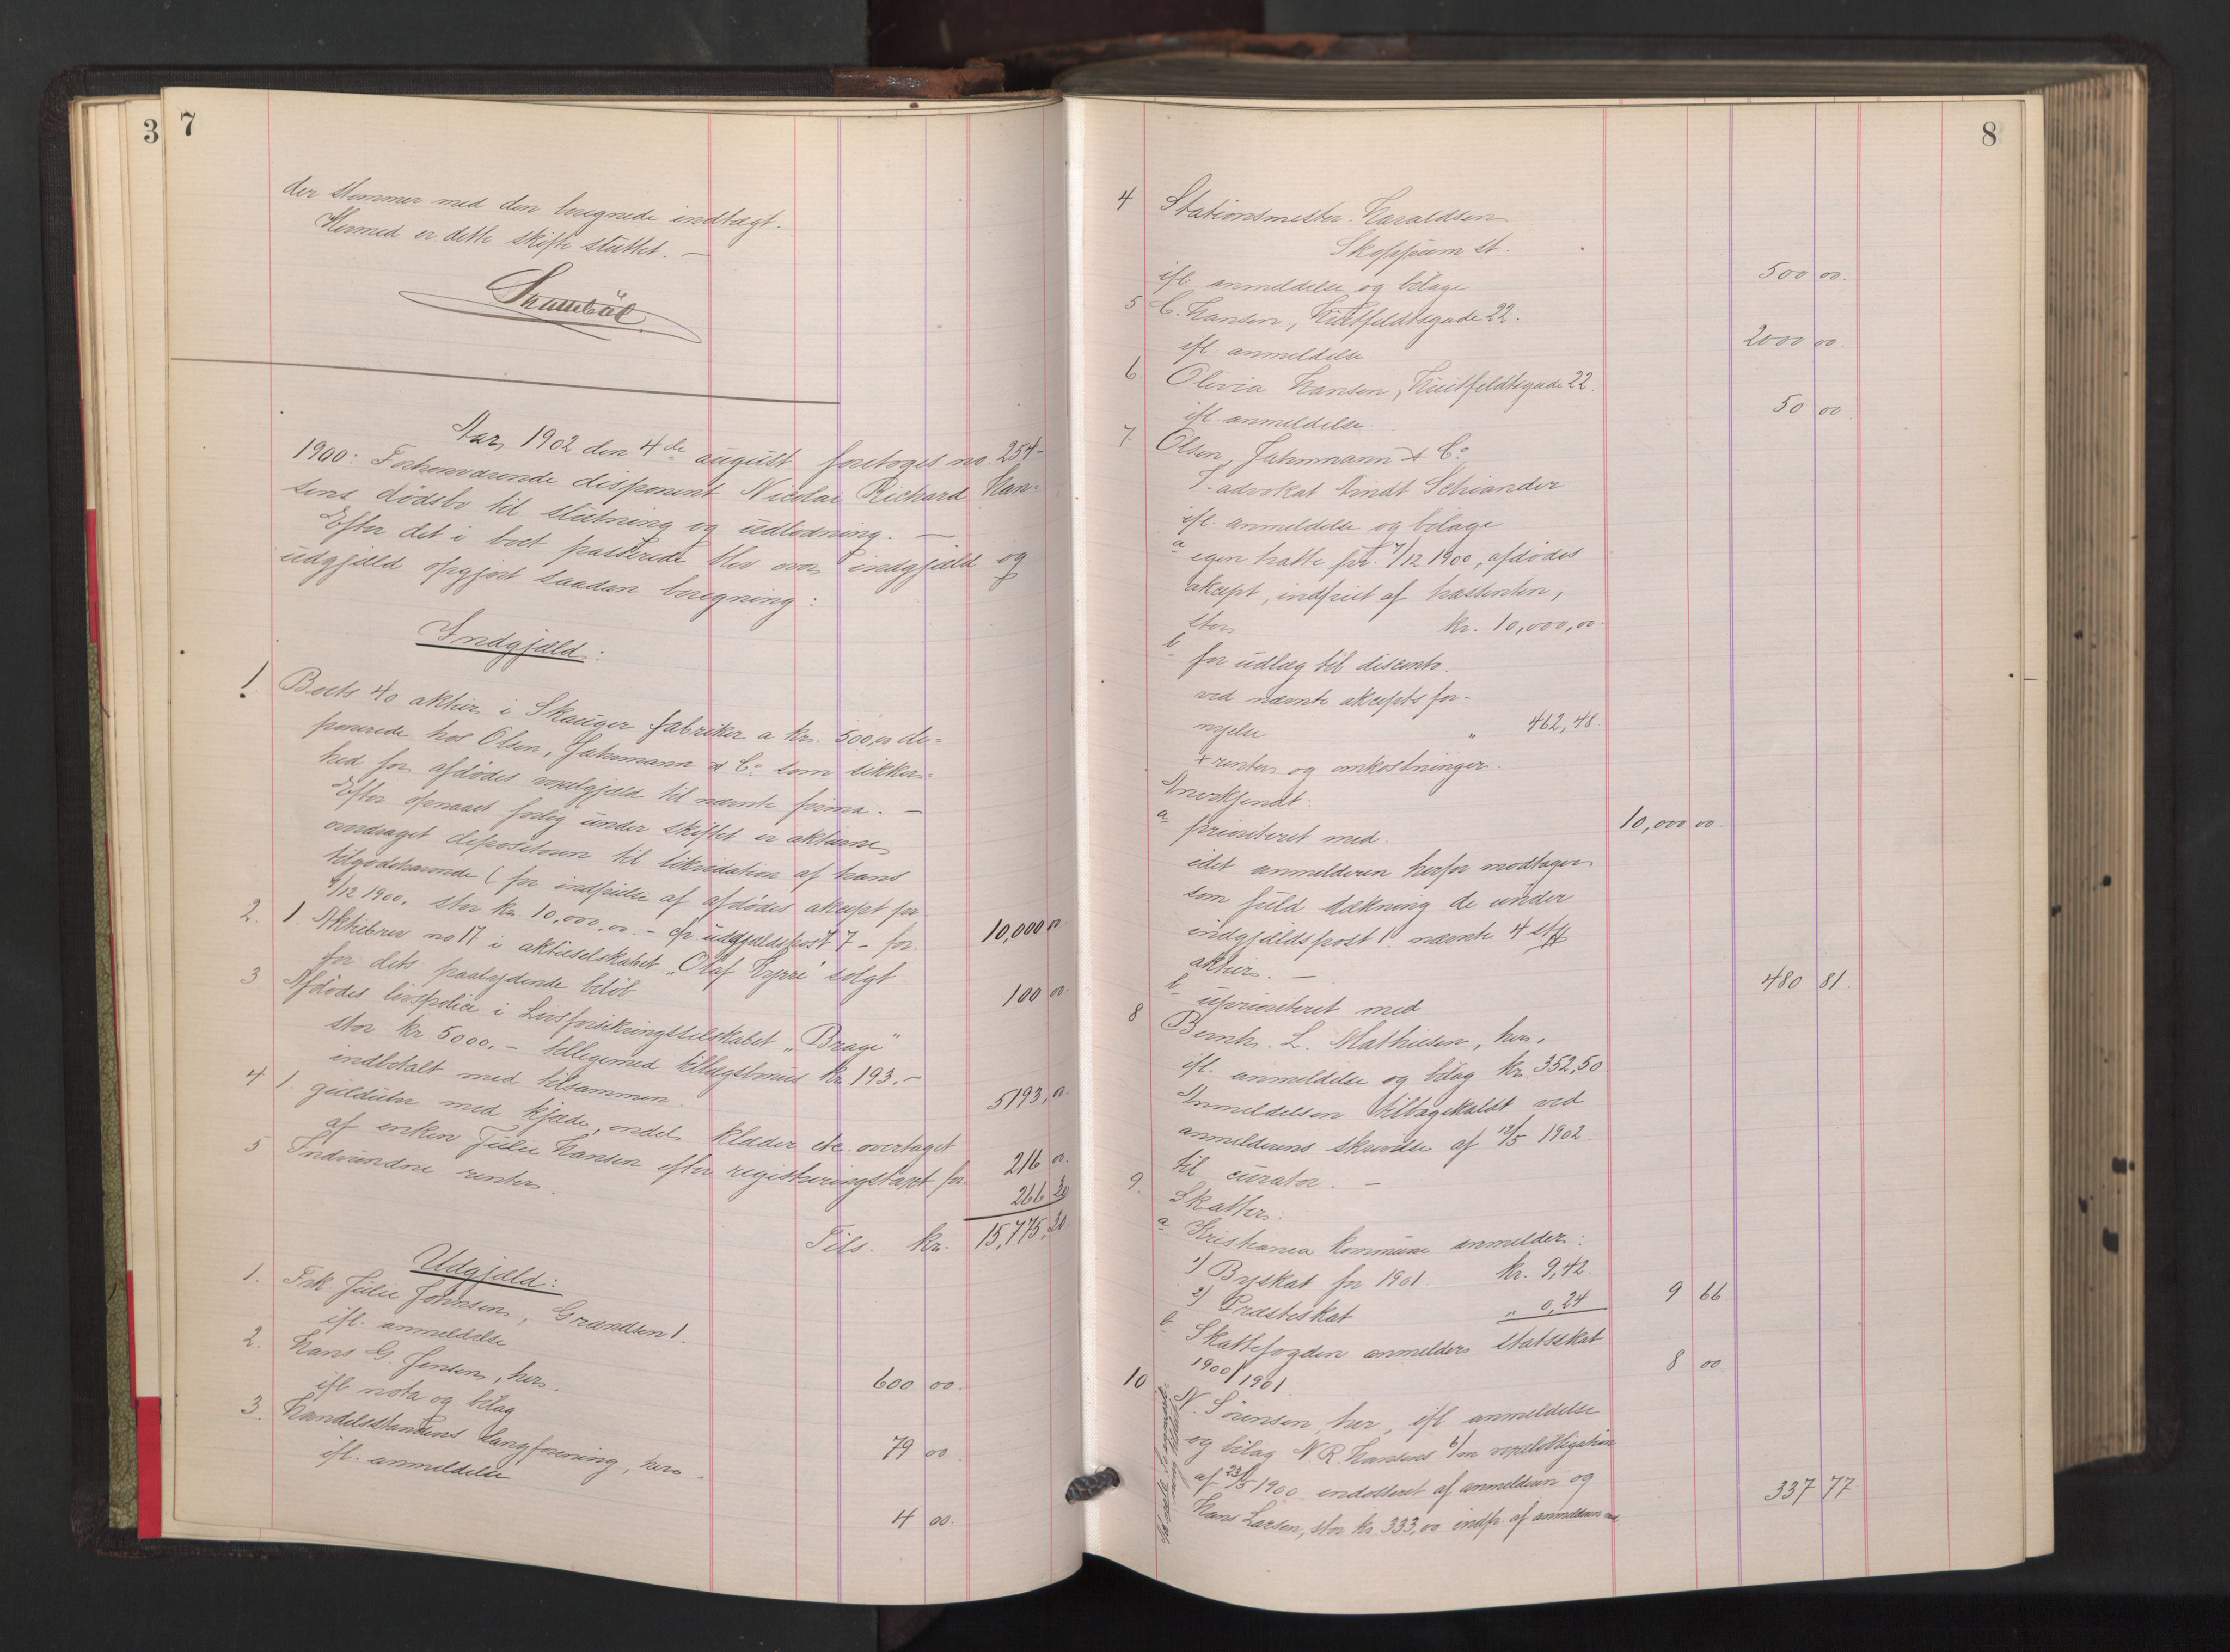 3
7
der stemmer med den beregnede indtægt.
Hermed er dette skifte sluttet. —
Aar 1902 den 4de august foretoges no. 254-
1900: Forhenværende disponent Nicolai Richard Han-
sens dødsbo til slutning og udlodning. —
Efter det i boet passerede blev over indgjæld og
udgjæld opgjort saadan beregning:
Indgjæld:
1. Boets 40 aktier i Skauger fabriker a kr. 500, er de-
ponerede hos Olsen, Jahnmann & Co. som sikker-
hed for afdødes vexelgjæld til nævnte firma. —
Efter opnaaet forlig under skiftet er aktierne
overdraget depositaren til likvidation af hans
tilgodehavende (for indfrielse af afdødes akcept pr.
9/12 1900, stor kr. 10,000,00. - cfr. udgjældspost 7 - for. 10,000 00
2. 1. Aktiebrev no 17 i aktieselskabet „Olaf Kyrre" solgt
for dets paalydende beløb 100 00.
3 Afdødes livspolice i Livsforsikringsselskabet „Brage"
stor kr 5000.- tilligemed tillægsbonus kr. 193.-
indbetalt med tilsammen. 5193, 00.
4 1. guldur med kjæde, endel klæder etc. overtaget
af enken Julie Hansen efter registreringstaxt for. 216 00.
5 Indvundne renter. 266 20
Tils. kr. 15,775,20
Udgjæld:
1. Frk. Julie Johnsen, Grændsen 1.
ifl. anmeldelse 600 00.
2. Hans G. Jensen, her.
ifl nota og bilag 79 00.
3. Handelsstandens Sangforening, her.
ifl. anmeldelse 4 00.
8
4 Stationsmester Haraldsen
Skoppum st.
ifl. anmeldelse og bilage 500 00.
5 C. Hansen, Huitfeldtsgade 22.
ifl. anmeldelse 2000 00.
6. Olivia Hansen, Huitfeldtsgade 22.
ifl. anmeldelse. 50 00.
7. Olsen, Jahnmann & Co.
v. advokat Arndt Schiander
ifl. anmeldelse og bilage
a egen tratte pr. 9/12 1900, afdødes
akcept, indfriet af trassenten,
stor kr. 10,000,00.
b for udlæg til disconto.
ved nævnte akcepts for-
nyelse „ 462,48
+ renter og omkostninger.
Anerkjendt:
a prioriteret med. 10,000 00
idet anmelderen herfor modtager
som fuld dækning de under
indgjældspost 1. nævnte 4 stk
aktier. —
b uprioriteret med 480 81.
8 Bernh. L. Mathiesen, her.
ifl. anmeldelse og bilag kr. 352,50
Anmeldelsen tilbagekaldt ved
anmelderens skrivelse af 12/5 1902.
til curator. —
9. Skatter:
a Kristiania kommune anmelder:
1) Byskat for 1901. kr. 9,42.
2) Præsteskat „ 0,24 9 66.
b Skattefogden anmelder statsskat
1900/1901. 8 00
10 N. Sørensen, her, ifl. anmeldelse
og bilag N R. Hansens vexelobligation
af 23/5 1900 endosseret af anmelderen og
Hans Larsen, stor kr. 333,00 indfr. af anmelderen med 337 77